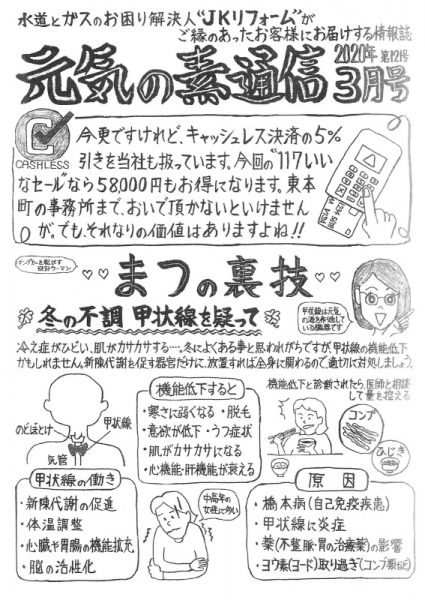 水道とガスのお困り解決人"JKリフォーム"が
ご縁のあったお客様にお届けする情報誌
元気の素通信
2020年 第121号
3月号
C
CASHLESS
今更ですけれど、キャッシュレス決済の5%
引きを当社も扱っています。今回の"117いい
なセール"なら58,000円もお得になります。東本
町の事務所まで、おいで頂かないといけません
が。でも、それなりの価値はありますよね!!
VISA
ダンプカーを転がす
設計ウーマン
まつの裏技
冬の不調 甲状線を疑って
甲状線は元気
の源を作り出して
いる臓器です
冷え症がひどい、肌がカサカサする…、冬によくある事と思われがちですが、甲状線の機能低下
かもしれません。新陳代謝を促す器官だけに、放置すれば全身に関わるので、適切に対処しましょう。
のどぼとけ
甲状線
気管
機能低下すると
・寒さに弱くなる ・脱毛
・意欲が低下 ・うつ症状
・肌がカサカサになる
・心機能・肝機能が衰える
機能低下と診断されたら、医師と相談
して量を控える
コンブ
ひじき
甲状線の働き
・新陳代謝の促進
・体温調整
・心臓や胃腸の機能拡充
・脳の活性化
中高年の
女性に多い
原因
・橋本病(自己免疫疾患)
・甲状線に炎症
・薬(不整脈・胃の治療薬)の影響
・ヨウ素(ヨード)取り過ぎ(コンブ類など)